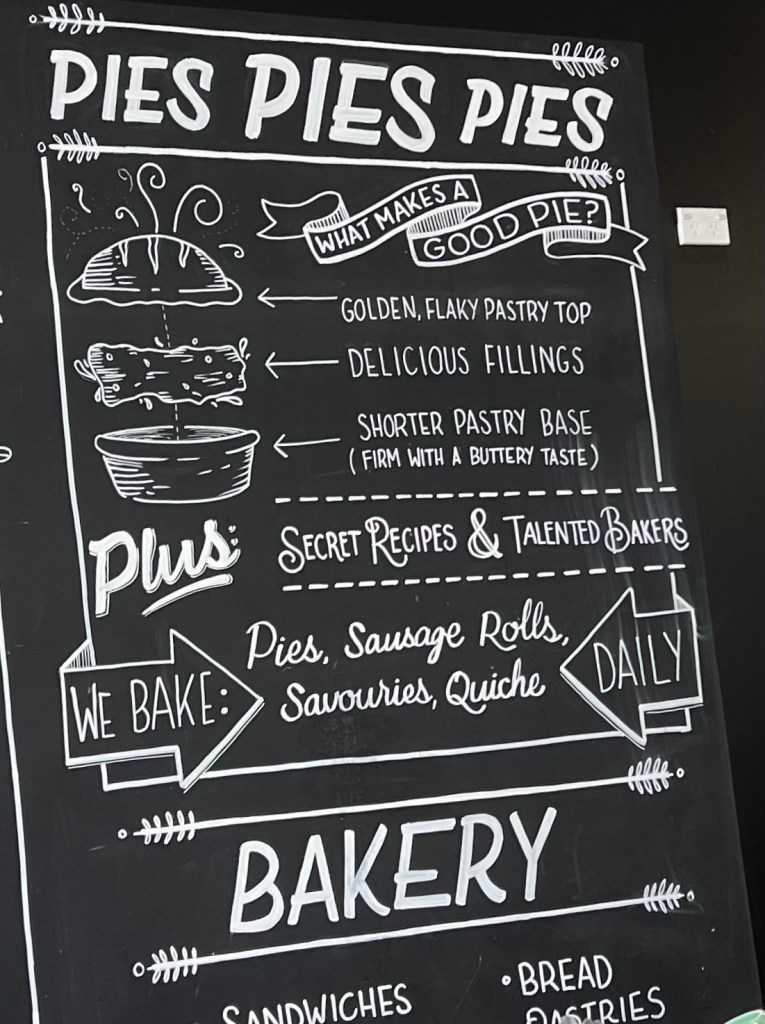 PIES PIES PIES
WHAT MAKES A
GOOD PIE?
GOLDEN, FLAKY PASTRY TOP
DELICIOUS FILLINGS
SHORTER PASTRY BASE
(FIRM WITH A BUTTERY TASTE)
Plus:
SECRET RECIPES & TALENTED BAKERS
WE BAKE:
Pies, Sausage Rolls,
Savouries, Quiche
DAILY
BAKERY
SANDWICHES
• BREAD
PASTRIES